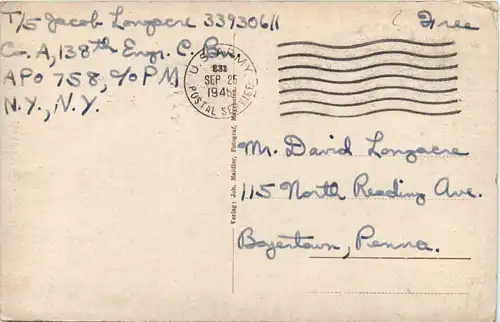 T/5 Jacob Longacre 33930611
Free
Co. A, 138th Engr. C. Bn.
APO 758, c/o PM
N.Y., N.Y.
U.S. ARMY
SEP 25
1945
POSTAL SERVICE
Mr. David Longacre
115 North Reading Ave.
Boyertown, Penna.
Verlag: Joh. Maidler, Fotograf,